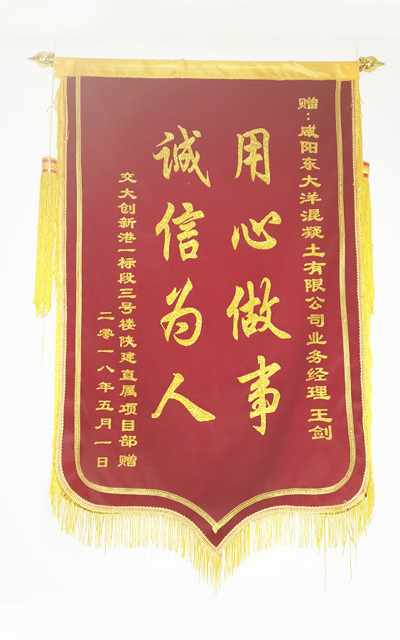 赠：咸阳东大洋混凝土有限公司业务经理 王剑
用心做事
诚信为人
交大创新港一标段三号楼陕建直属项目部 赠
二零一八年五月一日